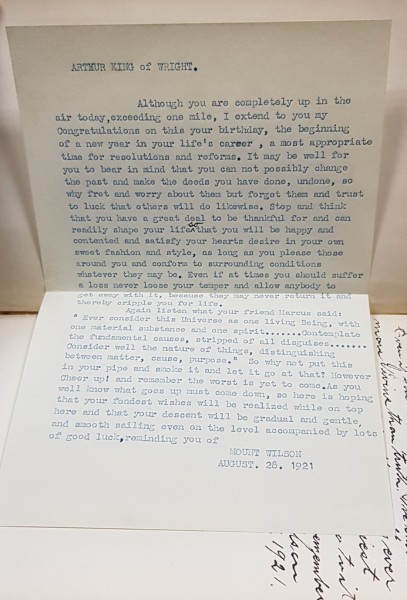 ARTHUR KING of WRIGHT.
Although you are completely up in the
air today,exceeding one mile, I extend to you my
Congratulations on this your birthday, the beginning
of a new year in your life's career , a most appropriate
time for resolutions and reforms. It may be well for
you to bear in mind that you can not possibly change
the past and make the deeds you have done, undone, so
why fret and worry about them but forget them and trust
to luck that others will do likewise. Stop and think
that you have a great deal to be thankful for and can
readily shape your life so that you will be happy and
contented and satisfy your hearts desire in your own
sweet fashion and style, as long as you please those
around you and conform to surrounding conditions
whatever they may be. Even if at times you should suffer
a loss never loose your temper and allow anybody to
get away with it, because they may never return it and
thereby cripple you for life.
Again listen what your friend Marcus said:
" Ever consider this Universe as one living Being, with
one material substance and one spirit.......Contemplate
the fundamental causes, stripped of all disguises........
Consider well the nature of things, distinguishing
between matter, cause, purpose." So why not put this
in your pipe and smoke it and let it go at that? However
Cheer up! and remember the worst is yet to come.As you
well know what goes up must come down, so here is hoping
that your fondest wishes will be realized while on top
here and that your descent will be gradual and gentle,
and smooth sailing even on the level accompanied by lots
of good luck,reminding you of
MOUNT WILSON
AUGUST. 28. 1921
more than truth
ever
1921.